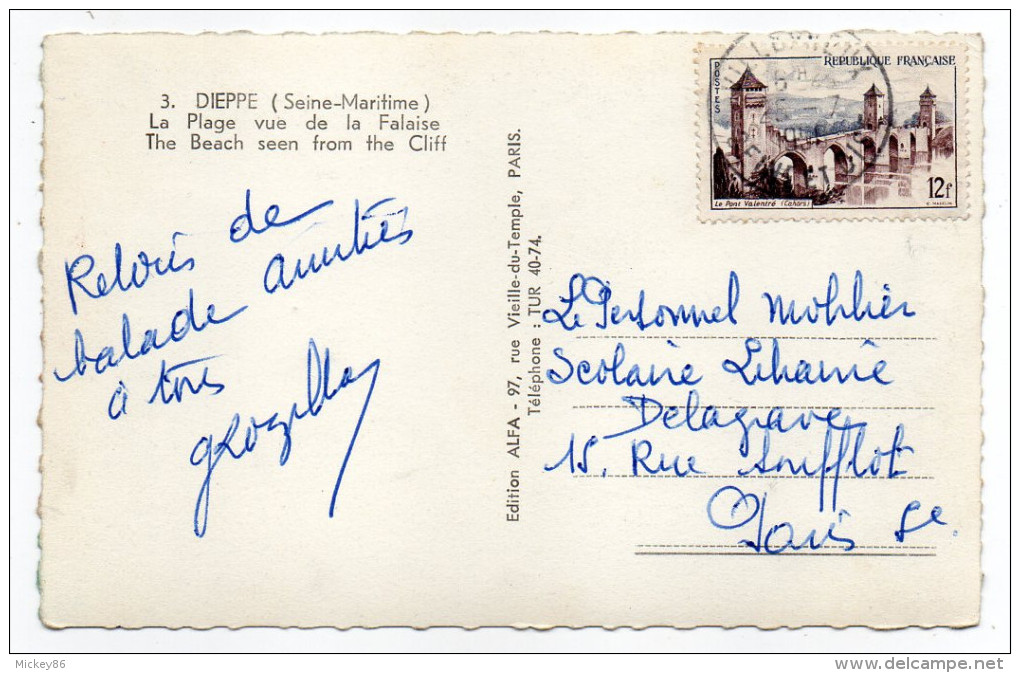 3. DIEPPE (Seine-Maritime)
La Plage vue de la Falaise
The Beach seen from the Cliff
de
balade amitiés
à tous
Edition ALFA - 97, rue Vieille-du-Temple, PARIS.
Téléphone : TUR 40-74.
POSTES
REPUBLIQUE FRANÇAISE
12f
Le Pont Valentré (Cahors)
Le Personnel Mobilier
Scolaire Librairie
Delagrave
15, Rue Soufflot
Paris 5e.
Mickey86
www.delcampe.net